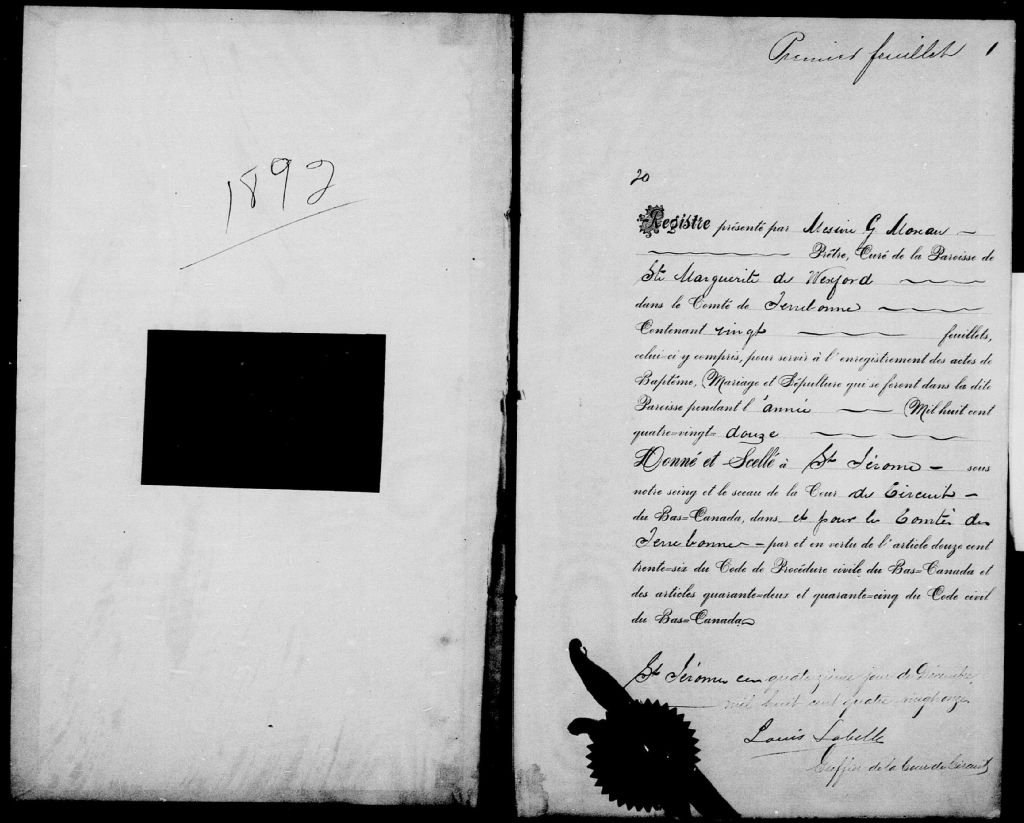 1892
Premier feuillet 1
20
Registre présenté par Messire G Moreau
Prêtre, Curé de la Paroisse de
Ste Marguerite de Wexford
dans le Comté de Terrebonne
Contenant vingt feuillets,
celui-ci y compris, pour servir à l'enregistrement des actes de
Baptême, Mariage et Sépulture qui se feront dans la dite
Paroisse pendant l'année Mil huit cent
quatre=vingt= douze
Donné et Scellé à St Jérome sous
notre seing et le sceau de la Cour de Circuit
du Bas=Canada, dans et pour le Comté de
Terrebonne par et en vertu de l'article douze cent
trente=six du Code de Procédure civile du Bas=Canada et
des articles quarante=deux et quarante=cinq du Code civil
du Bas=Canada
St Jérome ce quatorzieme jour de Décembre
mil huit cent quatre vingt onze
Louis Labelle
Greffier de la Cour de Circuit